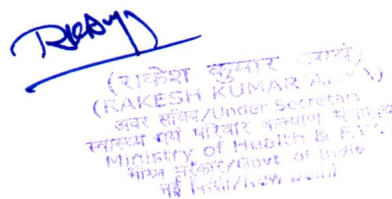 (राकेश कुमार
(RAKESH KUMAR
अवर सचिव/Under Secretary
स्वास्थ्य एवं परिवार कल्याण मंत्रालय
Ministry of Health & F.W.
भारत सरकार/Govt. of India
नई दिल्ली/New Delhi